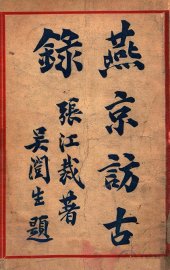 燕京訪古
錄
張江裁著
吳閏生題